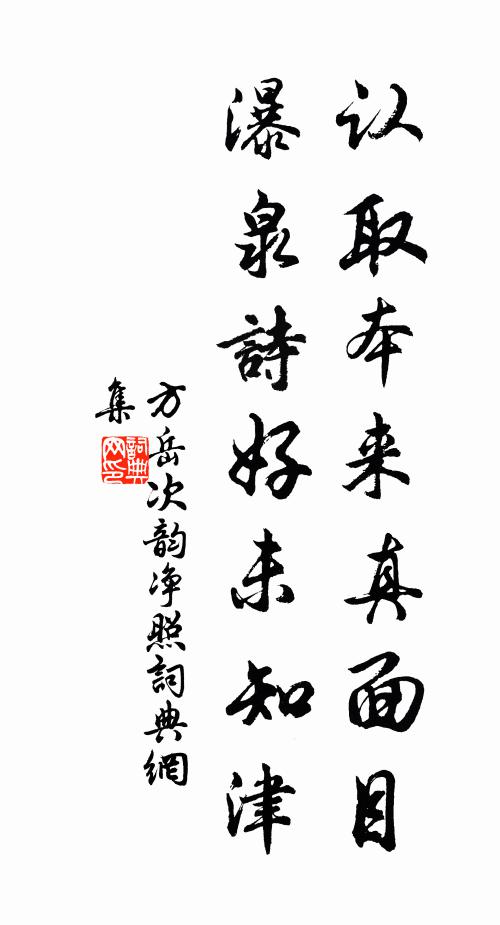 认取本来真面目
瀑泉詩好未知津
方岳次韵净照詞典網
集
詞典网印